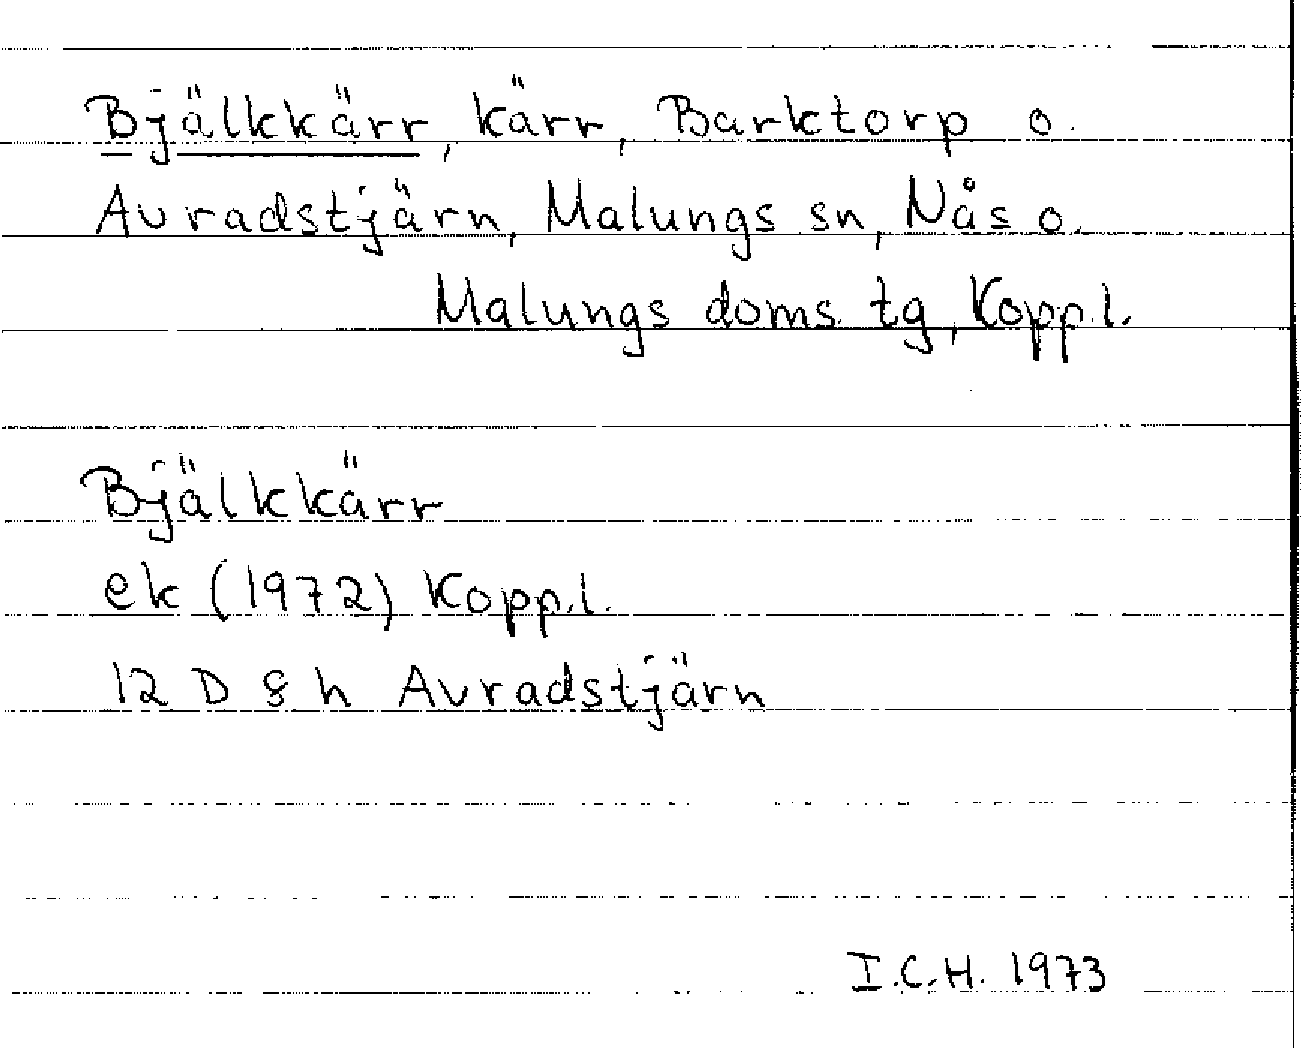 Bjälkkärr, kärr, Barktorp o.
Avradstjärn, Malungs sn, Nås o.
Malungs doms. tg, Kopp.l.
Bjälkkärr
ek (1972) Kopp.l.
12 D 8 h Avradstjärn
I.C.H. 1973